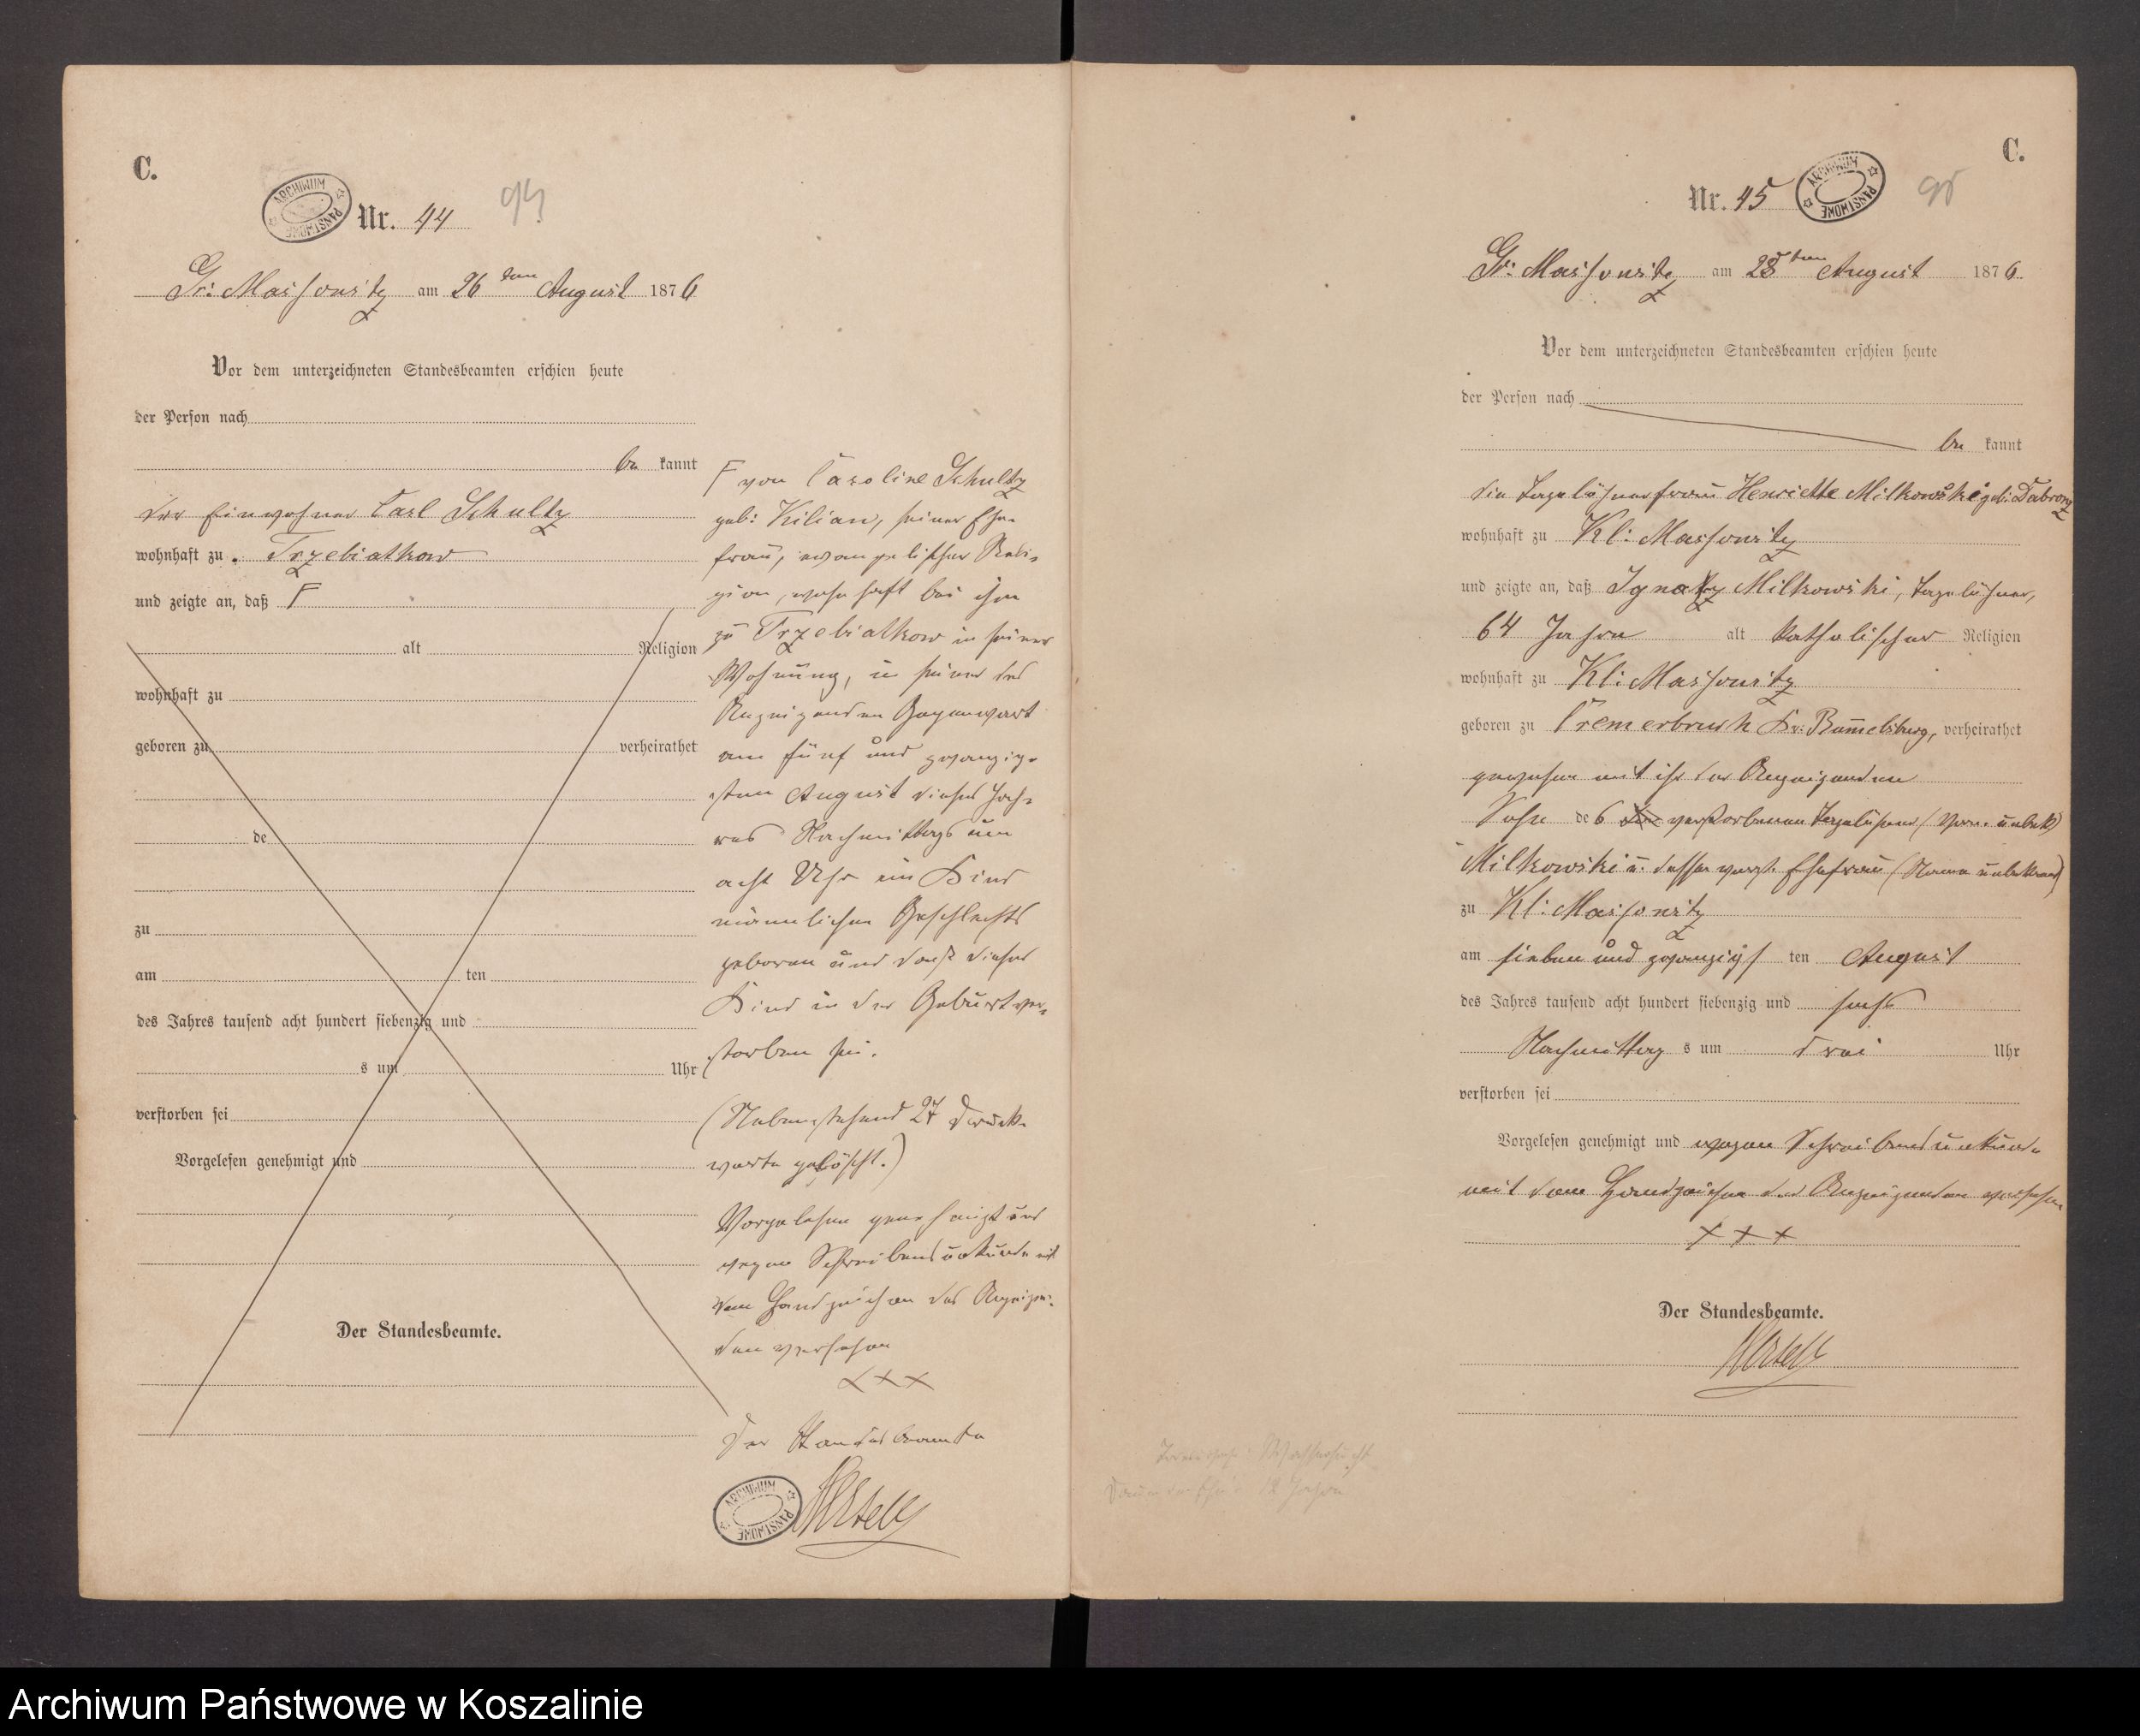 C.
ARCHIWUM PAŃSTWOWE
Nr. 44
94
Gr: Massowitz am 26ten August 1876
Vor dem unterzeichneten Standesbeamten erschien heute
der Person nach
be kannt
der Einwohner Carl Schultz
wohnhaft zu Trzebiatkow
und zeigte an, daß
alt Religion
wohnhaft zu
geboren zu verheirathet
de
zu
am ten
des Jahres tausend acht hundert siebenzig und
s um Uhr
verstorben sei
Vorgelesen genehmigt und
Der Standesbeamte.
von Caroline Schultz
geb: Kilian, seiner Ehe-
frau, evangelischer Reli-
gion, wohnhaft bei ihm
zu Trzebiatkow in seiner
Wohnung, in seiner des
Anzeigenden Gegenwart
am fünf und zwanzig-
sten August dieses Jah-
res Nachmittags um
acht Uhr ein Kind
männlichen Geschlechts
geboren und daß dieses
Kind in der Geburt ver-
storben sei.
(Nebenstehend 27 Druck-
worte gelöscht.)
Vorgelesen genehmigt und
wegen Schreibensunkunde mit
dem Handzeichen des Anzeigen-
den versehen
+++
Der Standesbeamte
ARCHIWUM PAŃSTWOWE
C.
Nr. 45
ARCHIWUM PAŃSTWOWE
95
Gr: Massowitz am 28ten August 1876
Vor dem unterzeichneten Standesbeamten erschien heute
der Person nach
be kannt
die Tagelöhnerfrau Henriette Milkowski geb:
wohnhaft zu Kl: Massowitz
und zeigte an, daß Ignatz Milkowski, Tagelöhner,
64 Jahre alt katholischer Religion
wohnhaft zu Kl: Massowitz
geboren zu Cremerbruch Kr: Rummelsburg, verheirathet
gewesen mit ihr der Anzeigenden
Sohn des verstorbenen Tagelöhner (Vorn. unbek)
Milkowski u. dessen verst. Ehefrau (Name unbekannt)
zu Kl: Massowitz
am sieben und zwanzigs ten August
des Jahres tausend acht hundert siebenzig und sechs
Nachmittag s um drei Uhr
verstorben sei
Vorgelesen genehmigt und wegen Schreibensunkunde
mit dem Handzeichen der Anzeigenden versehen
+++
Der Standesbeamte.
Archiwum Państwowe w Koszalinie